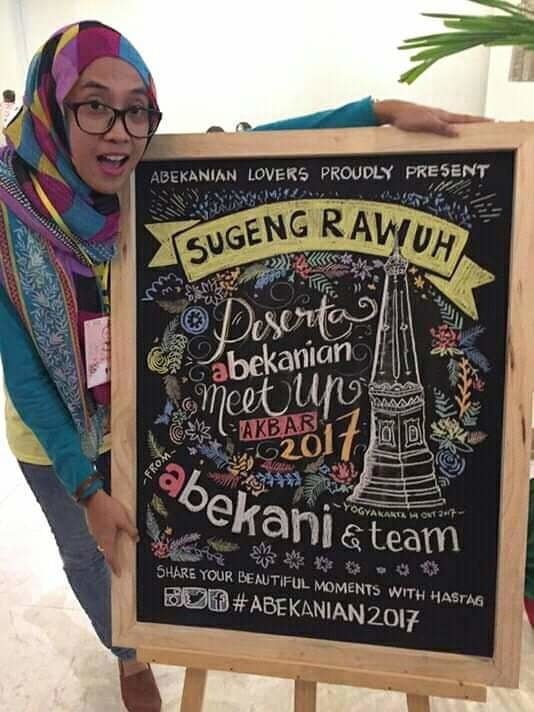 ABEKANIAN LOVERS PROUDLY PRESENT
SUGENG RAWUH
Peserta
abekanian
meet up
AKBAR
2017
-FROM-
abekani & team
-YOGYAKARTA 14 OKT 2017-
SHARE YOUR BEAUTIFUL MOMENTS WITH HASTAG
#ABEKANIAN2017